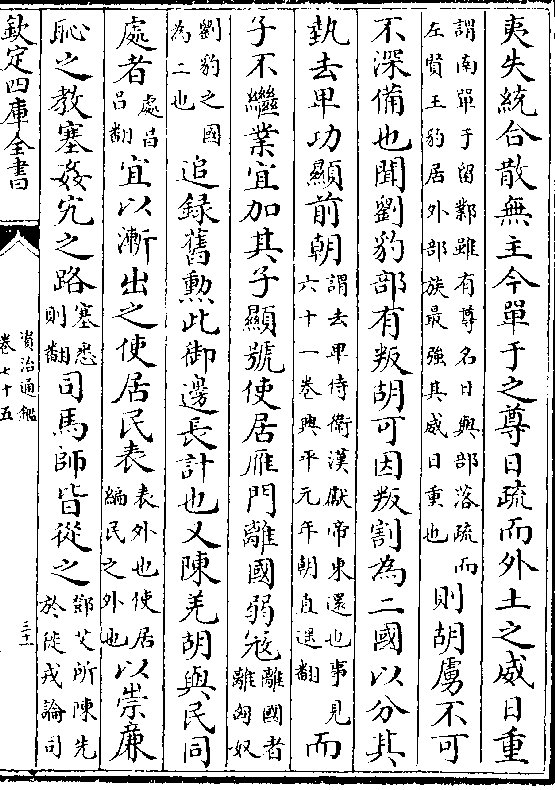 夷失統合散無主今單于之尊日疏而外土之威日重
謂南單于留鄴雖有尊名日與部落疏而
左賢王豹居外部族最強其威日重也
則胡虜不可
不深備也聞劉豹部有叛胡可因叛割為二國以分其
埶去卑功顯前朝
謂去卑侍衛漢獻帝東還也事見
六十一卷興平元年朝直遥翻
而
子不繼業宜加其子顯號使居雁門離國弱宼
離國者
離匈奴
劉豹之國
為二也
追録舊勲此御邊長計也又陳羌胡與民同
處者
處昌
吕翻
宜以漸出之使居民表
表外也使居
編民之外也
以崇廉
恥之教塞姦宄之路
塞悉
則翻
司馬師皆從之
鄧艾所陳先
於徙戎論司
欽定四庫全書
資治通鑑
卷七十五
三十